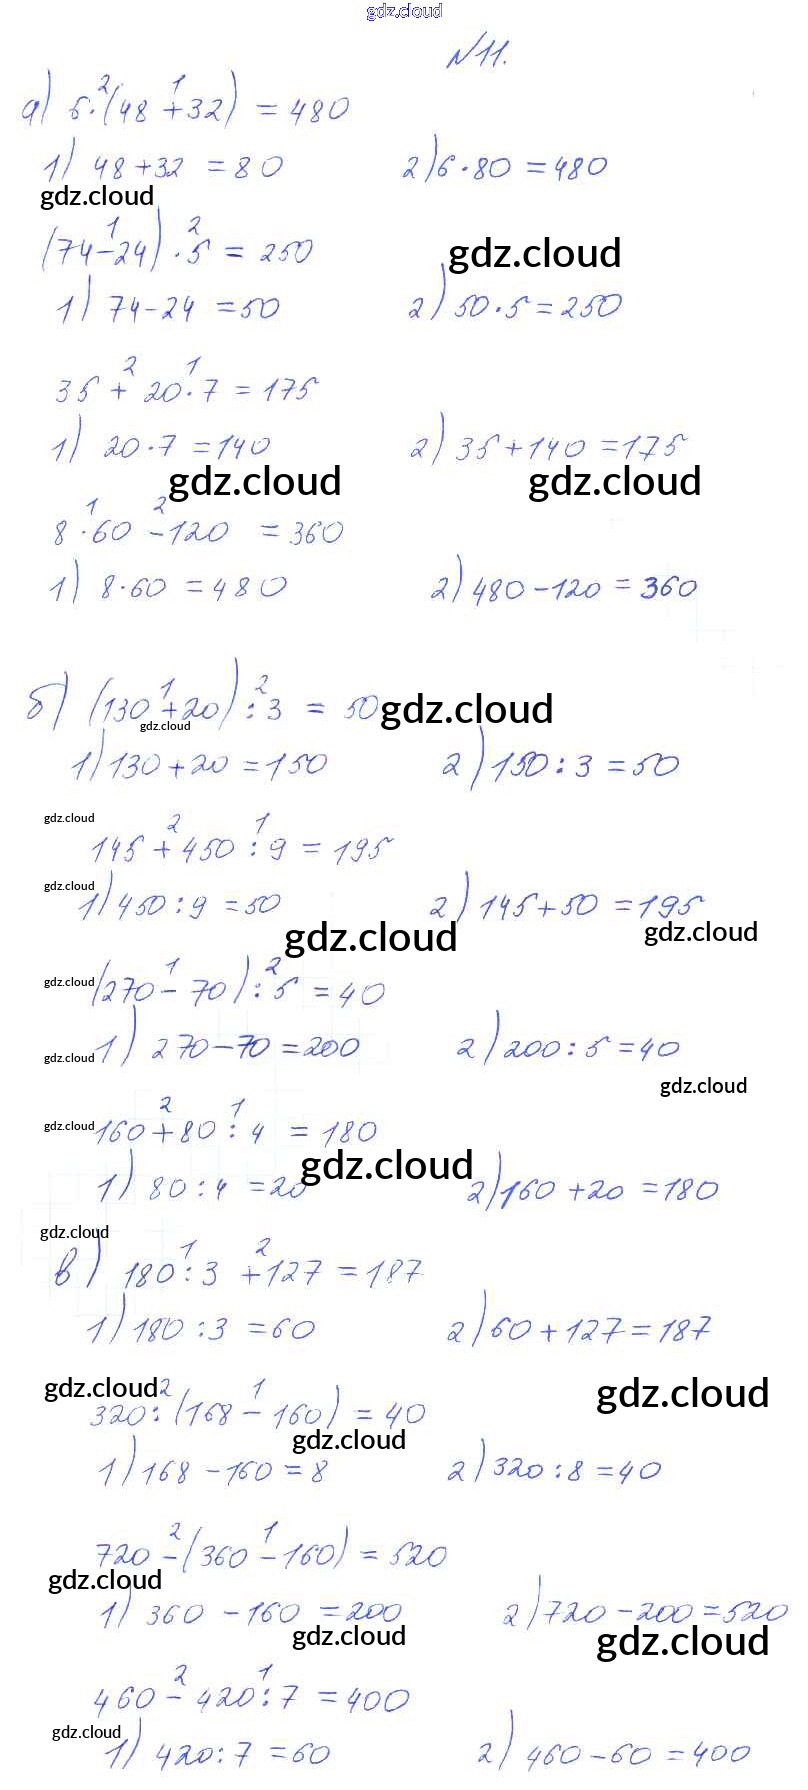 gdz.cloud
№11.
2 1
а) 6·(48+32) = 480
1) 48+32 = 80 2) 6·80 = 480
gdz.cloud
1 2
(74-24)·5 = 250 gdz.cloud
1) 74-24 = 50 2) 50·5 = 250
2 1
35 + 20·7 = 175
1) 20·7 = 140 2) 35+140 = 175
gdz.cloud gdz.cloud
1 2
8·60 - 120 = 360
1) 8·60 = 480 2) 480-120 = 360
1 2
б) (130+20):3 = 50 gdz.cloud
gdz.cloud
1) 130+20 = 150 2) 150:3 = 50
gdz.cloud 2 1
145 + 450:9 = 195
gdz.cloud
1) 450:9 = 50 2) 145+50 = 195
gdz.cloud gdz.cloud
1 2
gdz.cloud (270-70):5 = 40
gdz.cloud 1) 270-70 = 200 2) 200:5 = 40
gdz.cloud
2 1
gdz.cloud 160+80:4 = 180
gdz.cloud
1) 80:4 = 20 2) 160+20 = 180
gdz.cloud
1 2
в) 180:3 + 127 = 187
1) 180:3 = 60 2) 60+127 = 187
gdz.cloud 2 1 gdz.cloud
320:(168-160) = 40
gdz.cloud
1) 168-160 = 8 2) 320:8 = 40
2 1
720-(360-160) = 520
gdz.cloud
1) 360-160 = 200 2) 720-200 = 520
gdz.cloud gdz.cloud
2 1
460 - 420:7 = 400
gdz.cloud
1) 420:7 = 60 2) 460-60 = 400